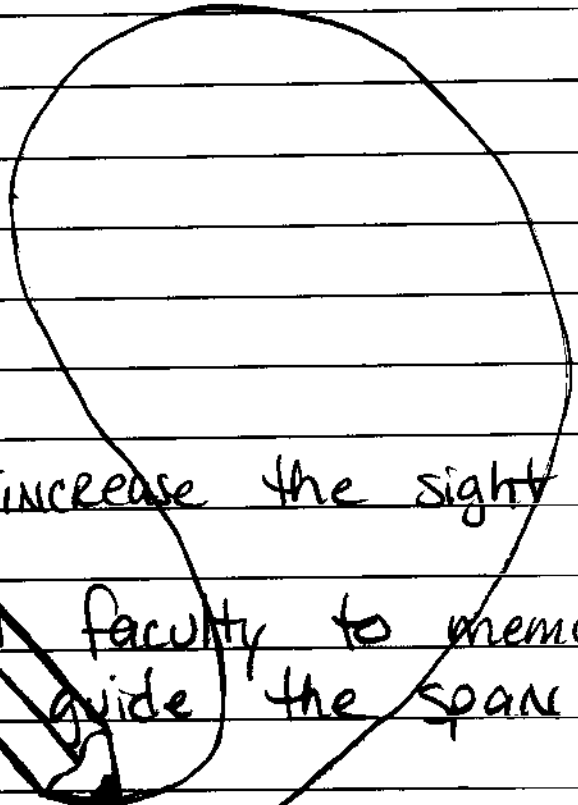 increase the sight
faculty to
guide the span